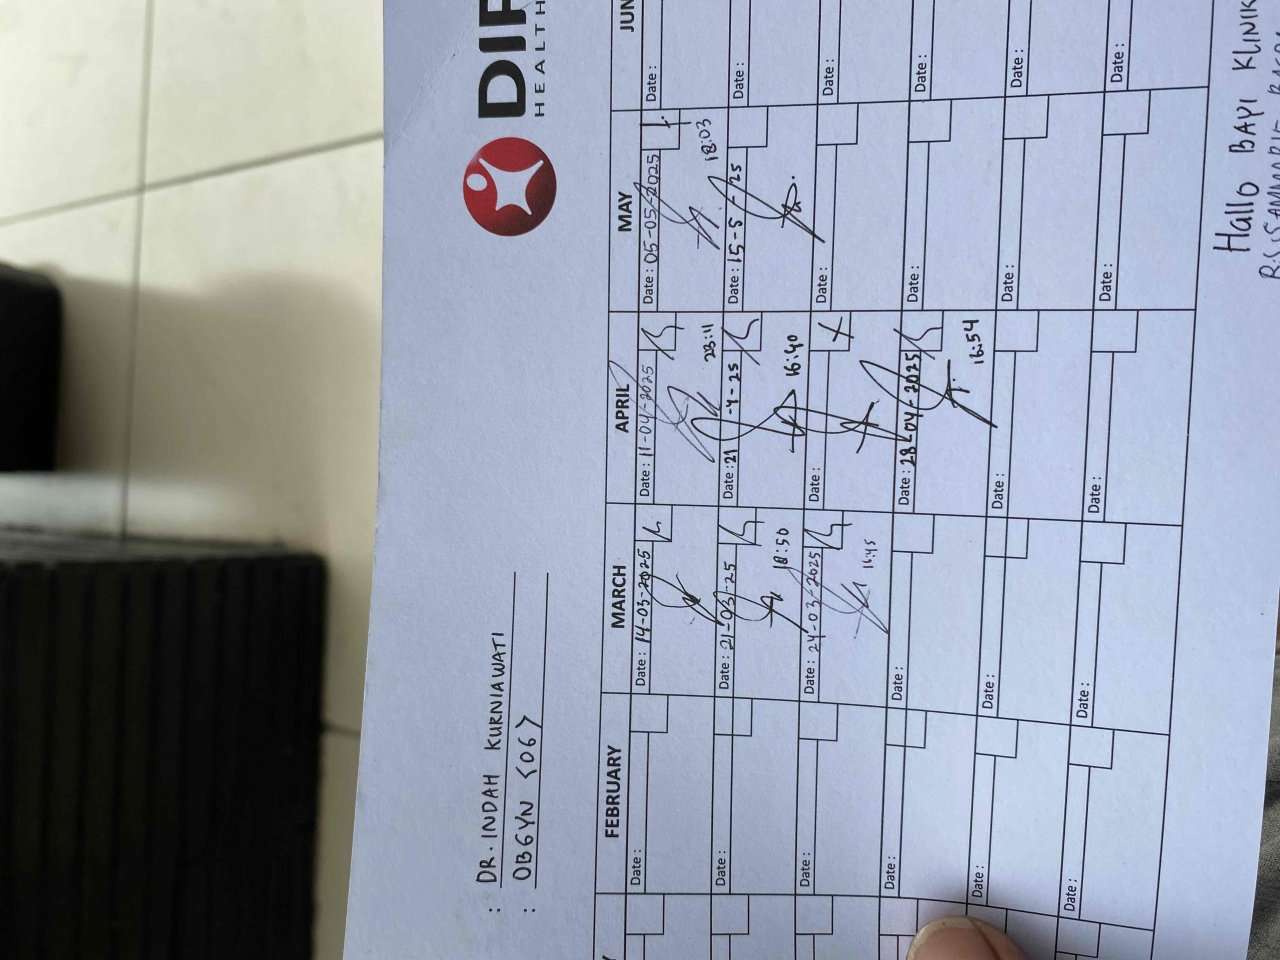 DIP
HEALTH
: DR. INDAH KURNIAWATI
: OBGYN <06>
FEBRUARY MARCH APRIL MAY JUN
Date : Date : 14-03-2025 Date : 11-04-2025 Date : 05-05-2025 Date :
23:11 18:03
Date : Date : 21-03-25 Date : 21-4-25 Date : 15-5-25 Date :
18:50 16:40
Date : Date : 24-03-2025 Date : Date : Date :
16:45
Date : Date : Date : 28-04-2025 Date : Date :
16:54
Date : Date : Date : Date : Date :
Date : Date : Date : Date : Date :
Hallo BAYI KLINIK